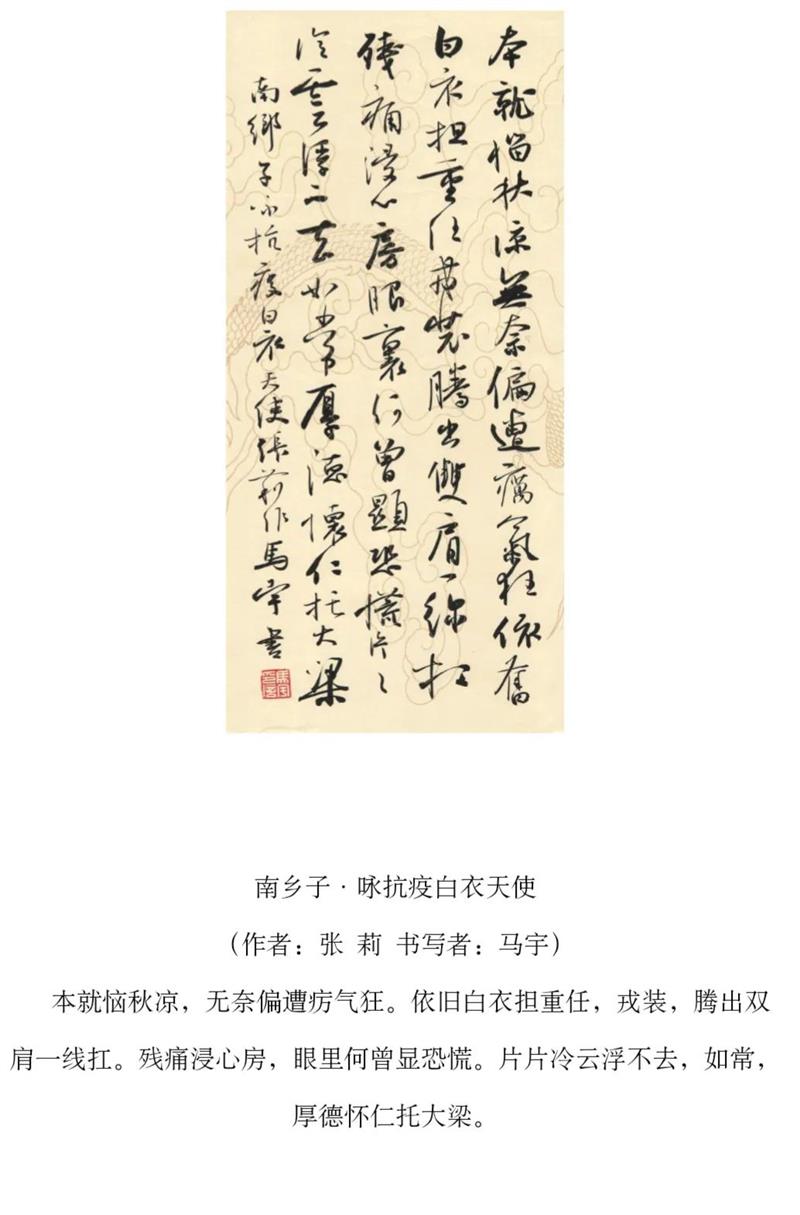 本就惱秋涼無奈偏遭癘氣狂依舊
白衣担重任戎裝騰出雙肩一線扛
殘痛浸心房眼裏何曾顯恐慌片々
冷雲浮不去如常厚德懷仁托大梁
南鄉子咏抗疫白衣天使張莉作馬宇書
南乡子·咏抗疫白衣天使
（作者：张 莉 书写者：马宇）
本就恼秋凉，无奈偏遭疠气狂。依旧白衣担重任，戎装，腾出双
肩一线扛。残痛浸心房，眼里何曾显恐慌。片片冷云浮不去，如常，
厚德怀仁托大梁。